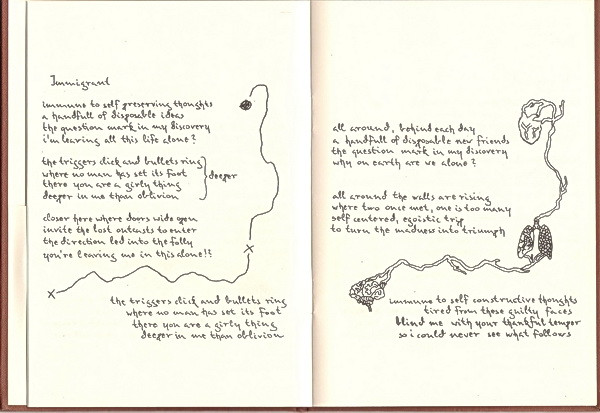 Immigrant
immune to self preserving thoughts
a handfull of disposable ideas
the question mark in my discovery
i'm leaving all this life alone?
the triggers click and bullets ring
where no man has set its foot
there you are a girly thing
deeper in me than oblivion
deeper
closer here where doors wide open
invite the lost outcasts to enter
the direction led into the folly
you're leaving me in this alone!!
X
X
the triggers click and bullets ring
where no man has set its foot
there you are a girly thing
deeper in me than oblivion
all around, behind each day
a handfull of disposable new friends
the question mark in my discovery
why on earth are we alone?
all around the walls are rising
where two once met, one is too many
self centered, egoistic trip
to turn the madness into triumph
immune to self constructive thoughts
tired from those guilty faces
blind me with your thankful temper
so i could never see what follows